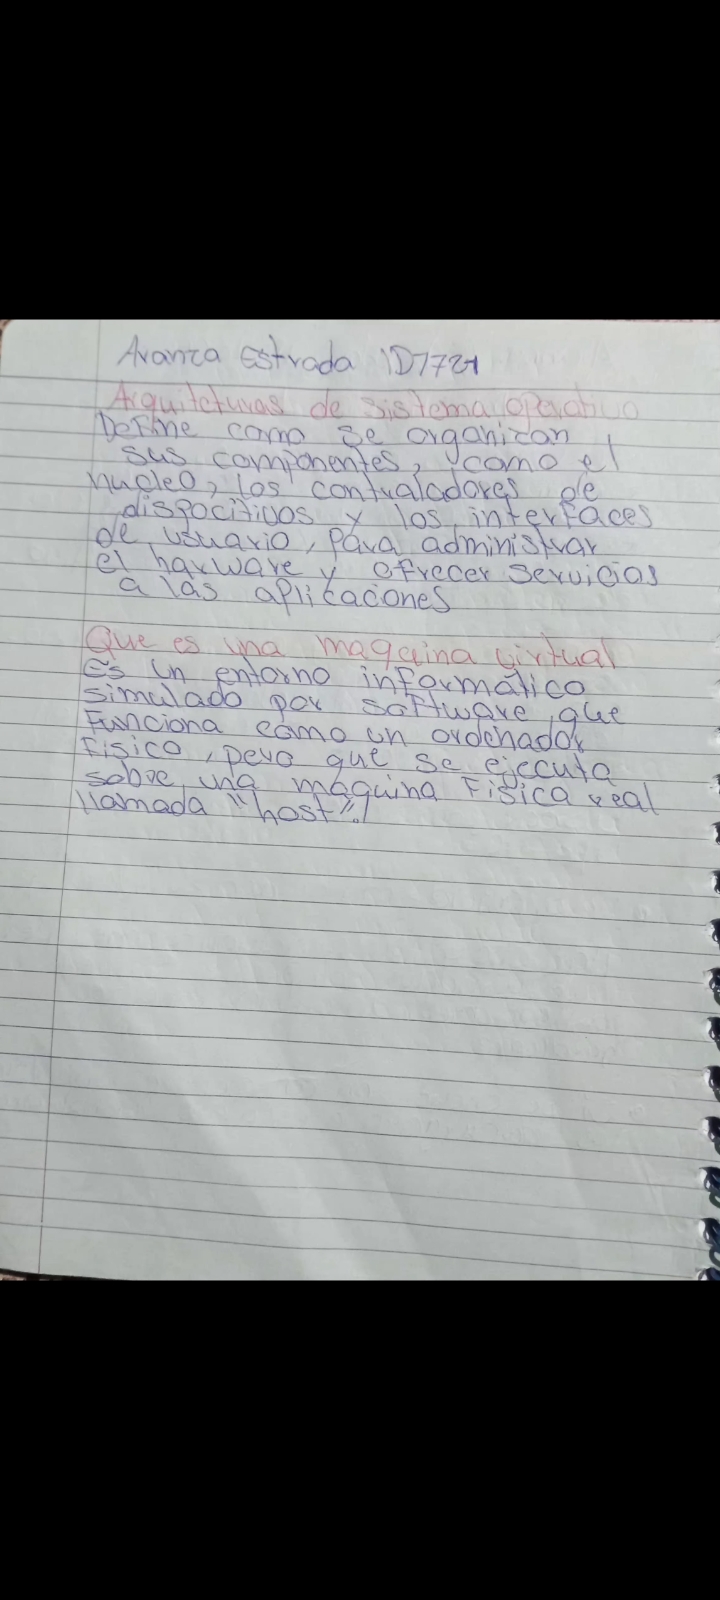 Aranza Estrada ID1721
Arquitcturas de sistema operativo
Define como se organizan
sus componentes, como el
nucleo, los contraladores de
dispocitivos y los interfaces
de usuario, para administrar
el harware y ofrecer servicios
a las aplicaciones
Que es una maquina virtual
Es un entorno informático
simulado por software, que
Funciona como un ordenador
Fisico, pero que se ejecuta
sobre una maquina Fisica real
llamada "host".